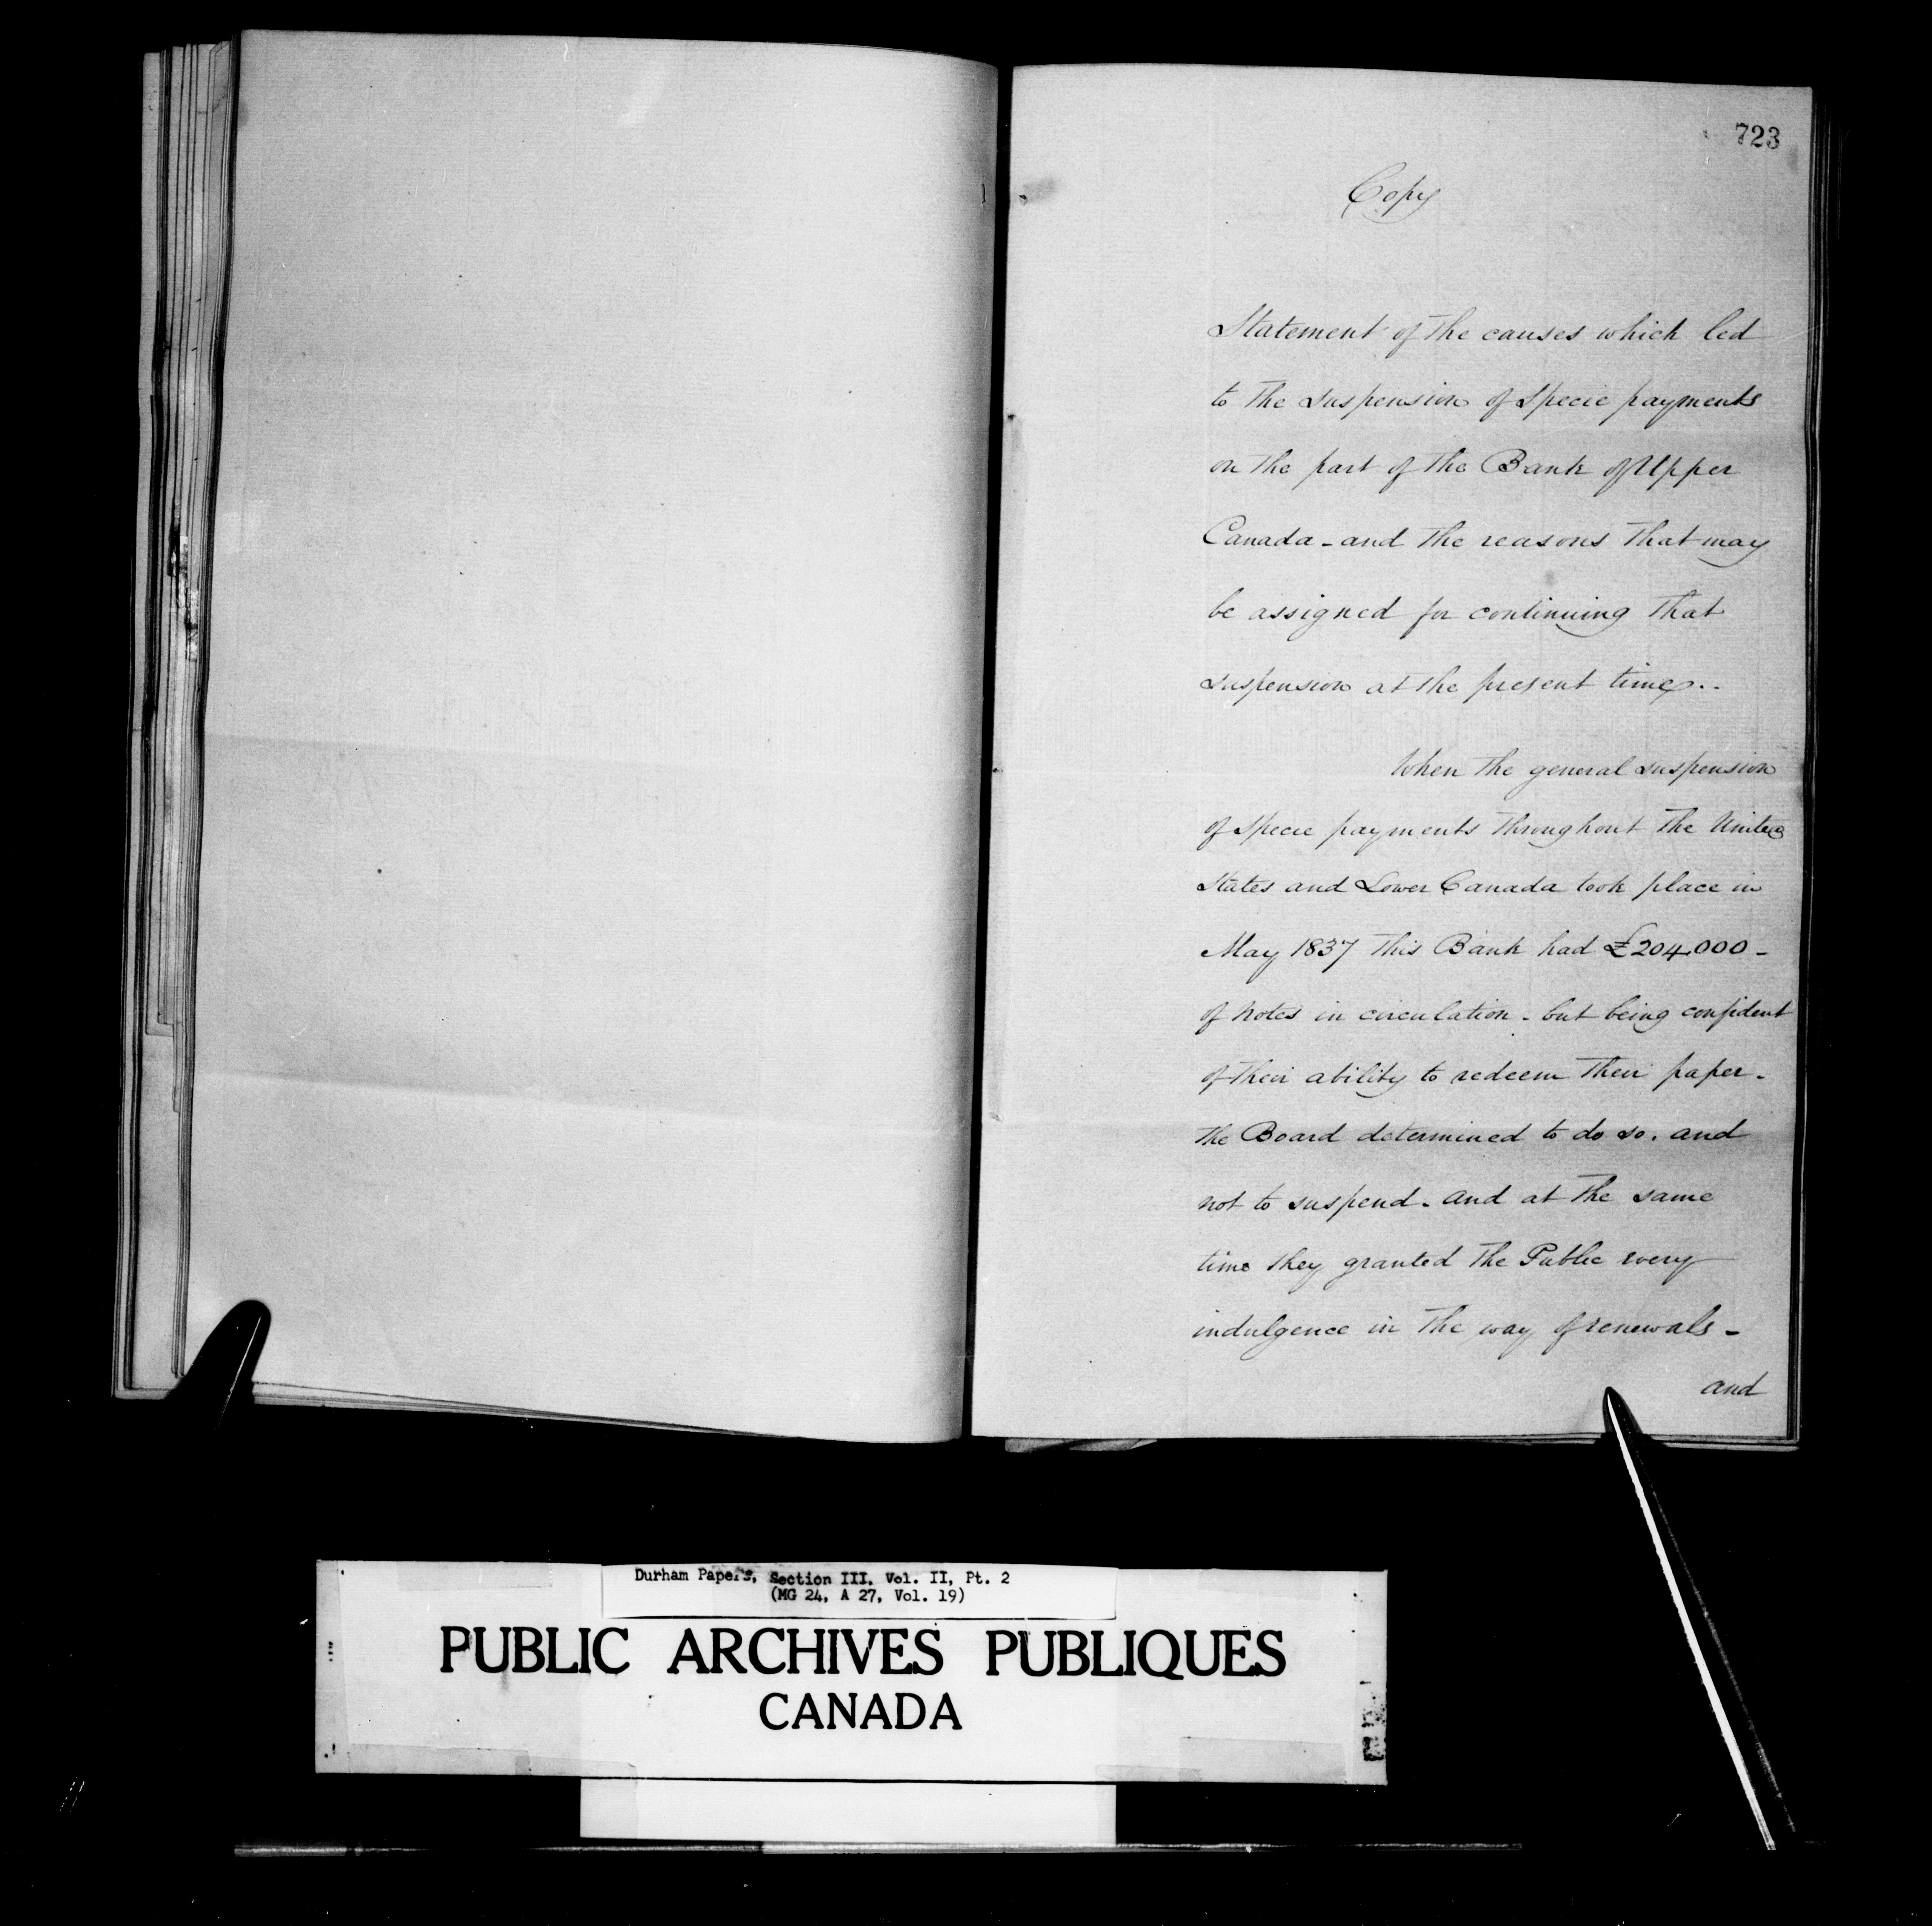 723
Copy
Statement of the causes which led
to the suspension of Specie payments
on the part of the Bank of Upper
Canada - and the reasons that may
be assigned for continuing that
suspension at the present time..
When the general suspension
of Specie payments throughout the United
States and Lower Canada took place in
May 1837 this Bank had £204,000 -
of Notes in circulation - but being confident
of their ability to redeem their paper -
the Board determined to do so. and
not to suspend - and at the same
time they granted the Public every
indulgence in the way of renewals -
and
Durham Papers, Section III, Vol. II, Pt. 2
(MG 24, A 27, Vol. 19)
PUBLIC ARCHIVES PUBLIQUES
CANADA